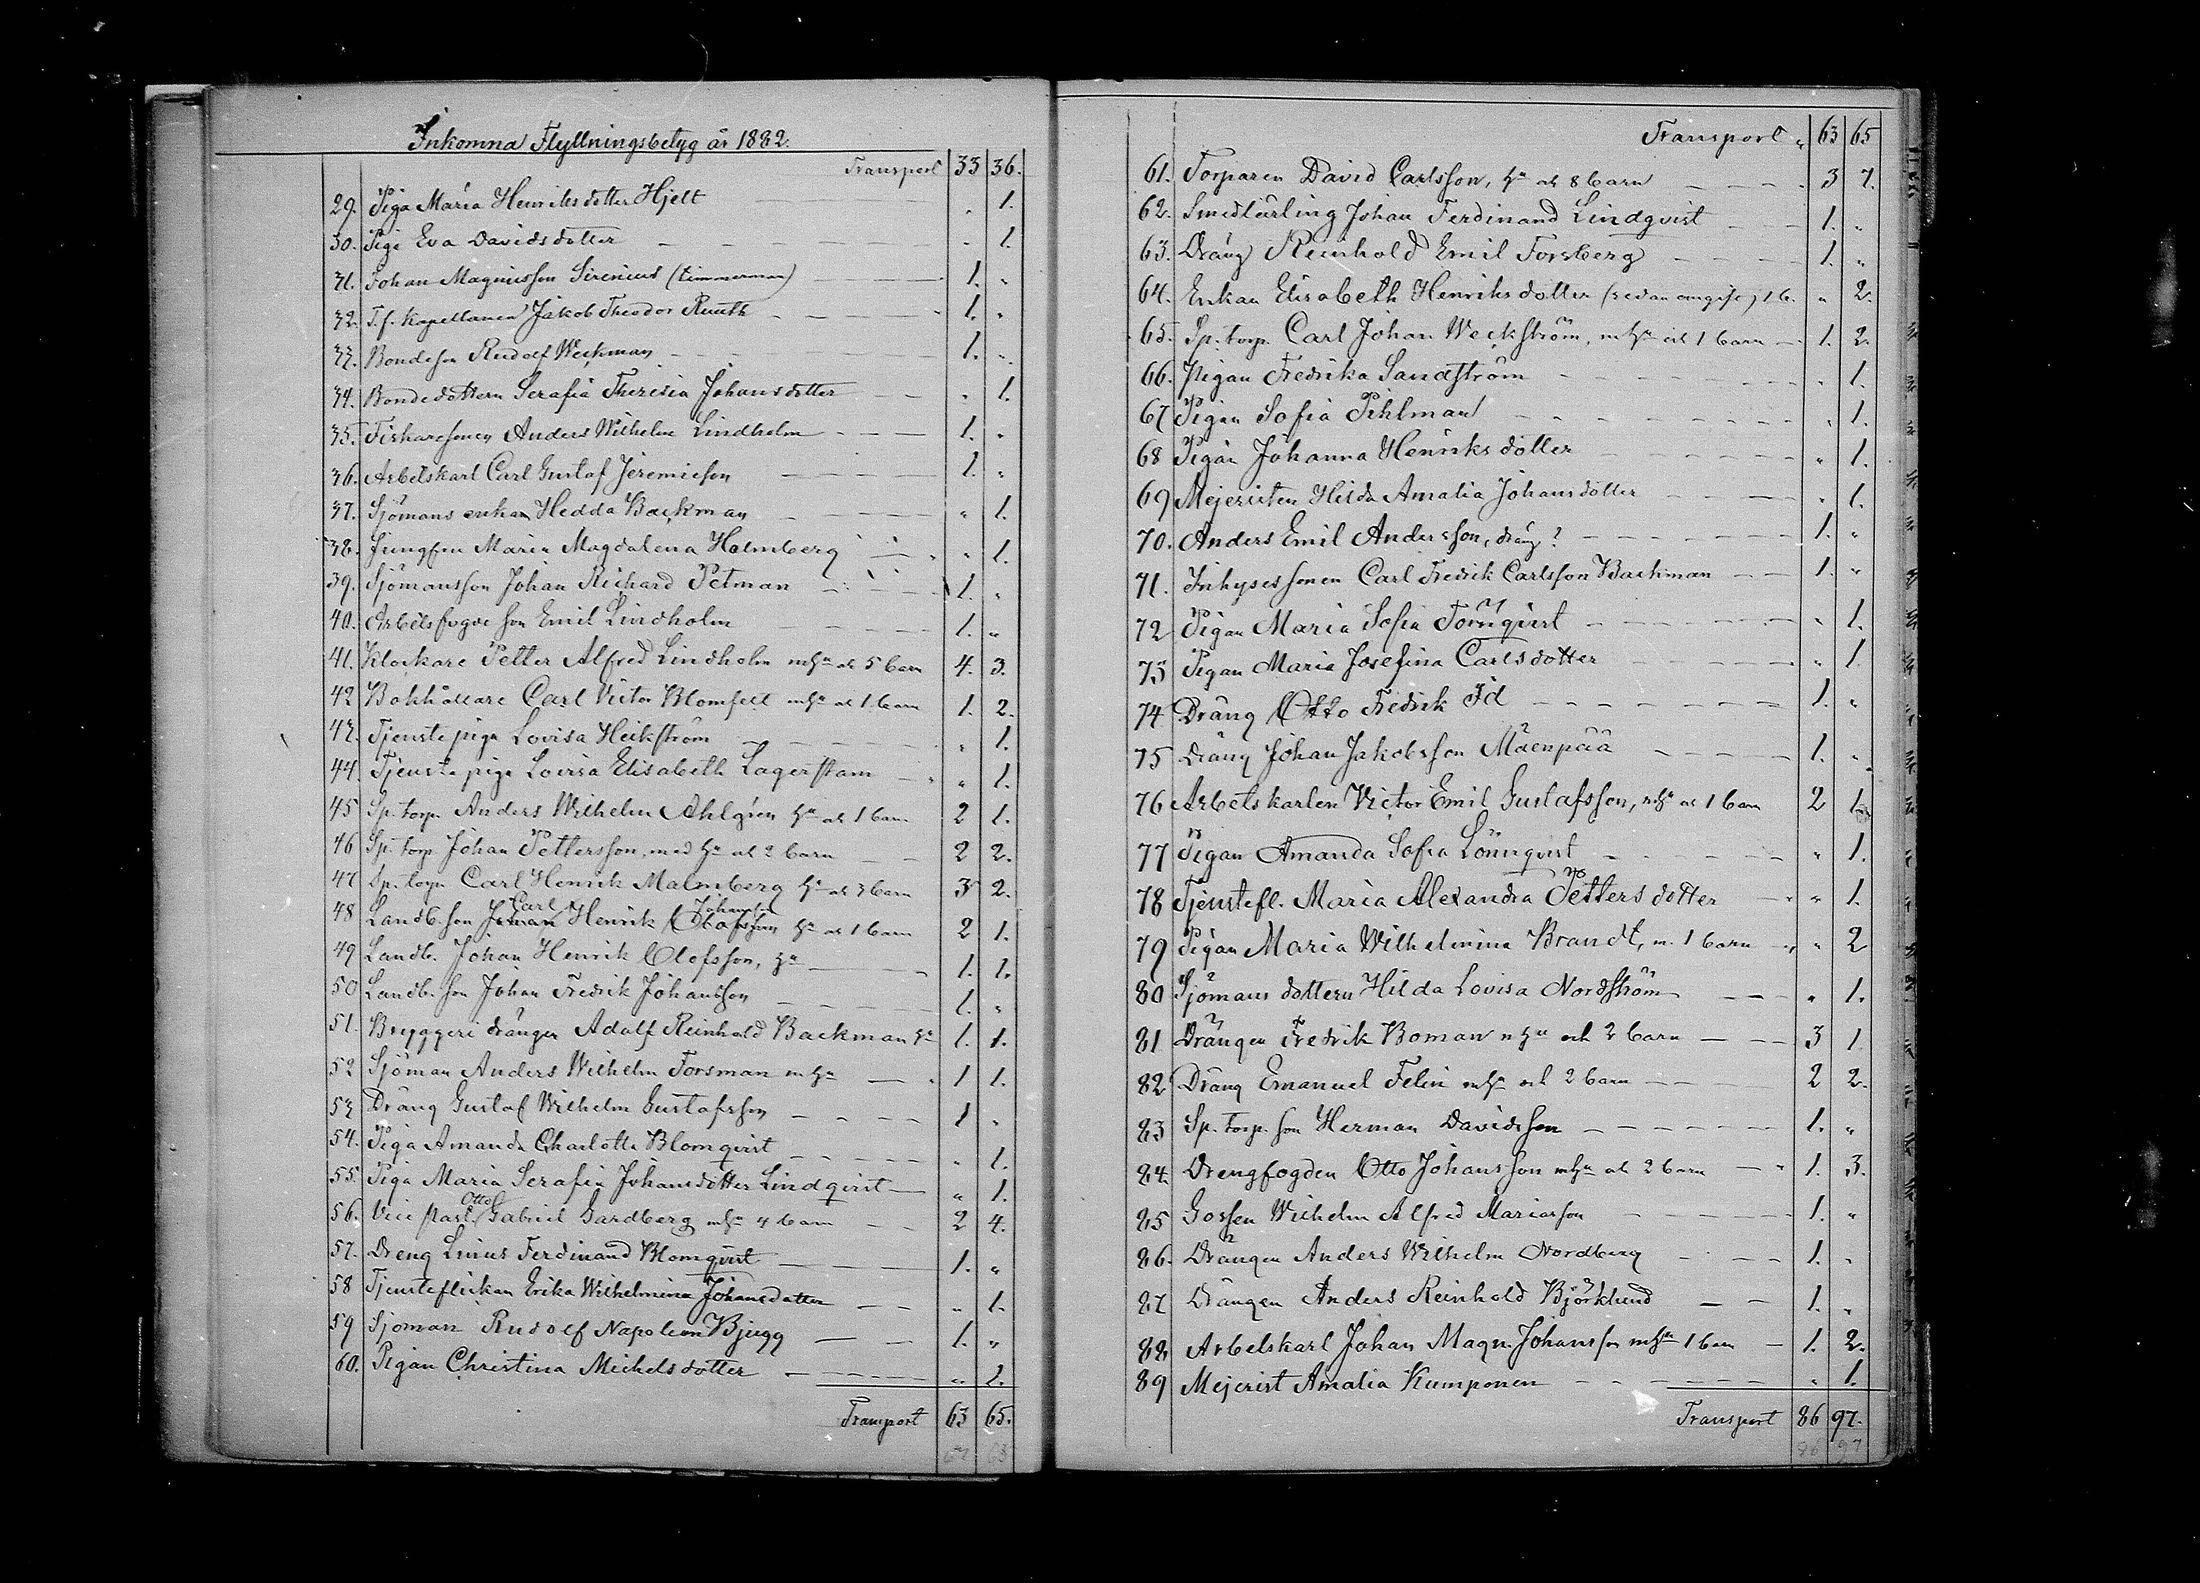 Inkomna Flyttningsbetyg år 1882.
Transport 33 36.
29. Piga Maria Henriksdotter Hjelt „ 1.
30. Piga Eva Davidsdotter „ 1.
31. Johan Magnusson Sirenius (timmerman) 1. „
32. T. f. Kapellanen Jakob Theodor Ruuth 1. „
33. Bondeson Rudolf Weckman 1. „
34. Bondedottern Serafia Theresia Johansdotter „ 1.
35. Fiskaresonen Anders Wilhelm Lindholm 1. „
36. Arbetskarl Carl Gustaf Jeremieson 1. „
37. Sjömans enkan Hedda Backman „ 1.
38. Jungfru Maria Magdalena Holmberg „ 1.
39. Sjömansson Johan Richard Petman 1. „
40. Arbetsfogde son Emil Lindholm 1. „
41. Klockare Petter Alfred Lindholm m hu o 5 barn 4. 3.
42 Bokhållare Carl Victor Blomfelt m hu o 1 barn 1. 2.
43. Tjenstepiga Lovisa Heikström „ 1.
44. Tjenste piga Lovisa Elisabeth Lagerstam „ 1.
45 Sp. torp. Anders Wilhelm Ahlgren hu o 1 barn 2 1.
46 Sp. torp. Johan Pettersson, med hu o 2 barn 2 2.
47 Sp. torp. Carl Henrik Malmberg hu o 3 barn 3 2.
Carl Johansson
48 Landb. son Johan Henrik Olofsson hu o 1 barn 2 1.
49 Landb. Johan Henrik Olofsson, hu 1. 1.
50 Landb. son Johan Fredrik Johansson 1. „
51. Bryggeri drängen Adolf Reinhold Backman hu 1. 1.
52 Sjöman Anders Wilhelm Forsman m hu 1 1.
53 Dräng Gustaf Wilhelm Gustafsson 1 „
54. Piga Amanda Charlotta Blomqvist „ 1.
55. Piga Maria Serafia Johansdotter Lindqvist „ 1.
Otto
56. Vice past. Gabriel Gardberg m hu 4 barn 2 4.
57. Dreng Linus Ferdinand Blomqvist 1. „
58 Tjensteflickan Erika Wilhelmina Johansdotter „ 1.
59 Sjöman Rudolf Napoleon Bjugg 1. „
60. Pigan Christina Michelsdotter „ 1.
Transport 63 65.
Transport „ 63 65
61. Torparen David Carlsson, hu o 8 barn 3 7.
62. Smedlärling Johan Ferdinand Lindqvist 1. „
63. Dräng Reinhold Emil Forsberg 1. „
64. Enkan Elisabeth Henriksdotter (sedan omgift) 1 b. „ 2.
65. Sp. torp. Carl Johan Weckström, m hu o 1 barn 1. 2.
66. Pigan Fredrika Sandström „ 1.
67 Pigan Sofia Pihlman „ 1.
68 Pigan Johanna Henriksdotter „ 1.
69 Mejeristen Hilda Amalia Johansdotter „ 1.
70. Anders Emil Andersson, dräng? 1. „
71. Inhysessonen Carl Fredrik Carlsson Backman 1. „
72 Pigan Maria Sofia Törnqvist „ 1.
73 Pigan Maria Josefina Carlsdotter „ 1.
74 Dräng Otto Fredrik Id 1. „
75 Dräng Johan Jakobsson Mäenpää 1. „
76 Arbetskarlen Victor Emil Gustafsson, m hu o 1 barn 2 1.
77 Pigan Amanda Sofia Lönnqvist „ 1.
78 Tjenstefl. Maria Alexandra Pettersdotter „ 1.
79 Pigan Maria Wilhelmina Brandt, m. 1 barn „ 2
80 Sjömans dottern Hilda Lovisa Nordström „ 1.
81 Drängen Fredrik Boman m hu och 2 barn 3 1
82 Dräng Emanuel Felin m hu och 2 barn 2 2.
83 Sp. torp. son Herman Davidsson 1. „
84. Drengfogden Otto Johansson m hu o 2 barn 1. 3.
85 Gossen Wilhelm Alfred Mariasson 1. „
86. Drängen Anders Wilhelm Nordberg 1. „
87 Drängen Anders Reinhold Björklund 1. „
88. Arbetskarl Johan Magn. Johansson m hu 1 barn 1. 2.
89 Mejerist Amalia Kumponen „ 1.
Transport 86 97.
86 97